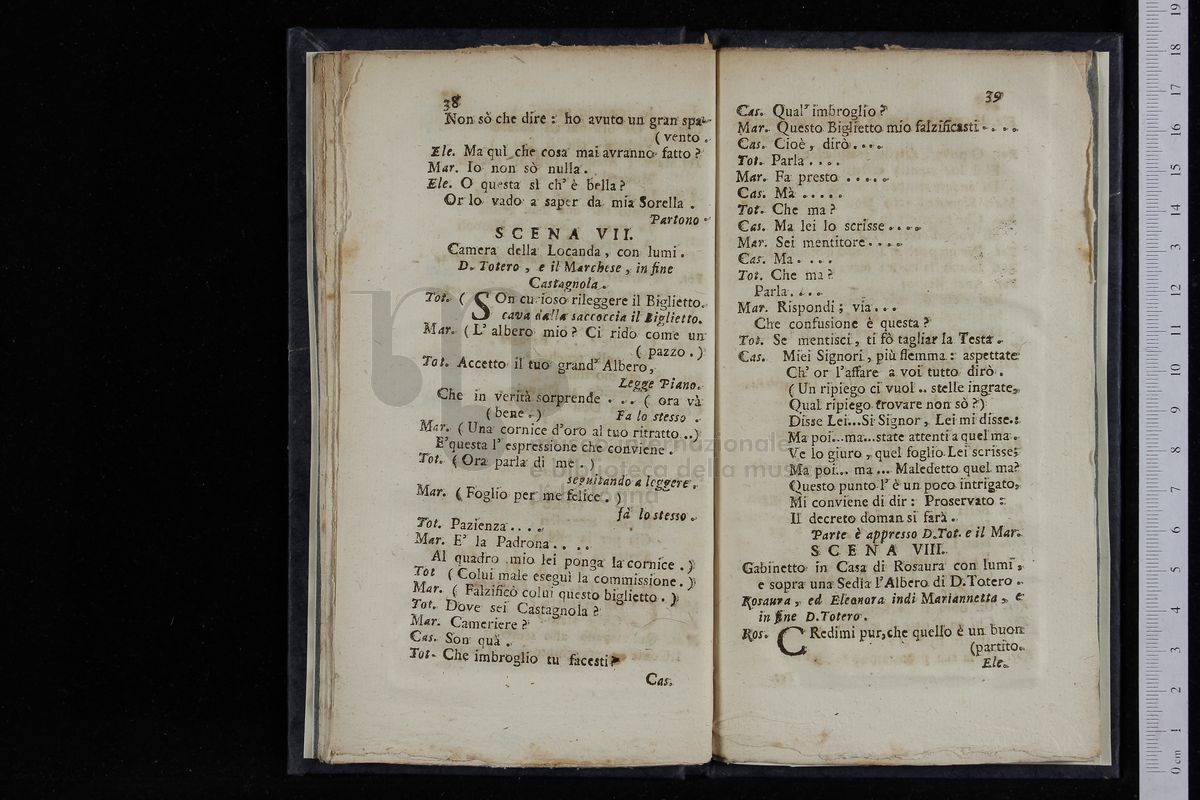 38
Non sò che dire : ho avuto un gran spa-
( vento .
Ele. Ma quì che cosa mai avranno fatto ?
Mar. Io non sò nulla .
Ele. O questa sì ch' è bella ?
Or lo vado a saper da mia Sorella .
Partono .
SCENA VII.
Camera della Locanda, con lumi .
D. Totero , e il Marchese , in fine
Castagnola .
Tot. ( SOn curioso rileggere il Biglietto.
cava dalla saccoccia il Biglietto.
Mar. ( L' albero mio ? Ci rido come un
( pazzo . )
Tot. Accetto il tuo grand' Albero,
Legge Piano.
Che in verità sorprende . . . ( ora và
( bene . ) Fa lo stesso .
Mar. ( Una cornice d'oro al tuo ritratto .. )
E'questa l' espressione che conviene .
Tot. ( Ora parla di me . )
seguitando a leggere .
Mar. ( Foglio per me felice . )
fà lo stesso .
Tot. Pazienza . . . .
Mar. E' la Padrona . . . .
Al quadro mio lei ponga la cornice . )
Tot ( Colui male eseguì la commissione . )
Mar. ( Falzificò colui questo biglietto . )
Tot. Dove sei Castagnola ?
Mar. Cameriere ?
Cas. Son quà .
Tot. Che imbroglio tu facesti ?
Cas.
39
Cas. Qual' imbroglio ?
Mar. Questo Biglietto mio falzificasti . . . .
Cas. Cioè , dirò . . . .
Tot. Parla . . . .
Mar. Fa presto . . . . .
Cas. Mà . . . . .
Tot. Che ma ?
Cas. Ma lei lo scrisse . . . .
Mar. Sei mentitore . . . .
Cas. Ma . . . .
Tot. Che ma ?
Parla . . . .
Mar. Rispondi ; via . . .
Che confusione è questa ?
Tot. Se mentisci , ti fò tagliar la Testa .
Cas. Miei Signori , più flemma : aspettate
Ch' or l'affare a voi tutto dirò .
( Un ripiego ci vuol .. stelle ingrate,
Qual ripiego trovare non sò ? )
Disse Lei...Sì Signor , Lei mi disse.:
Ma poi...ma...state attenti a quel ma .
Ve lo giuro , quel foglio Lei scrisse;
Ma poi... ma ... Maledetto quel ma?
Questo punto l' è un poco intrigato,
Mi conviene di dir : Proservato :
Il decreto doman si farà .
Parte è appresso D.Tot. e il Mar.
SCENA VIII.
Gabinetto in Casa di Rosaura con lumi ,
e sopra una Sedia l'Albero di D.Totero .
Rosaura , ed Eleonora indi Mariannetta , e
in fine D.Totero .
Ros. CRedimi pur,che quello è un buon
(partito.
Ele.
museo internazionale
e biblioteca della musica
di bologna